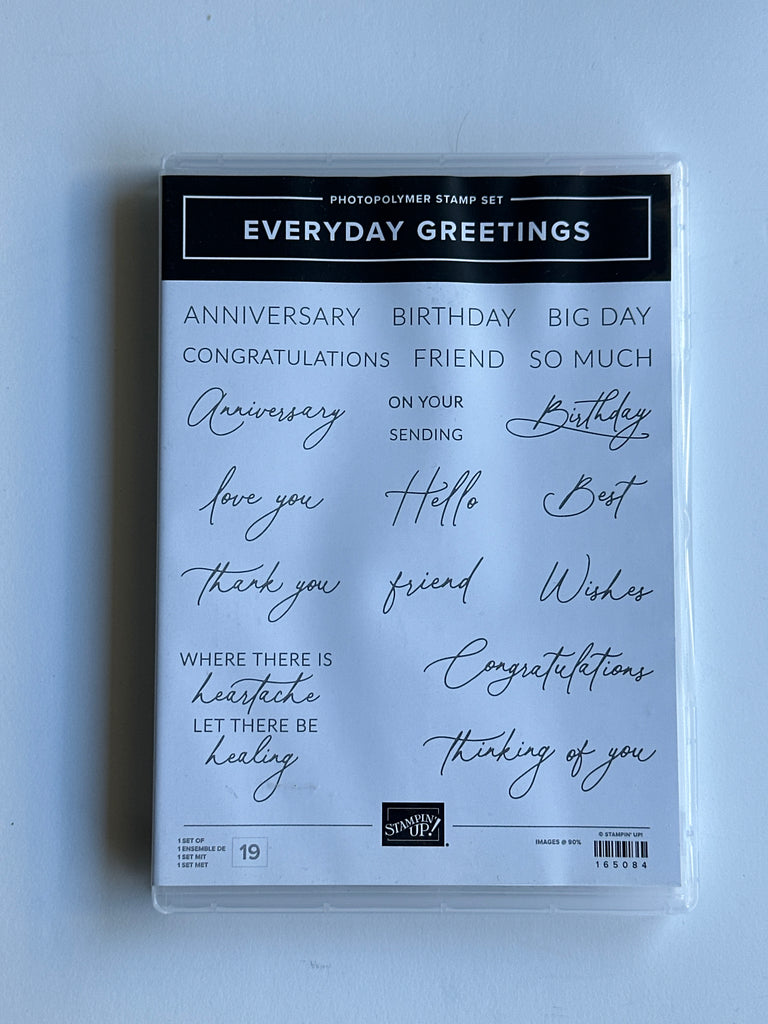 PHOTOPOLYMER STAMP SET
EVERYDAY GREETINGS
ANNIVERSARY BIRTHDAY BIG DAY
CONGRATULATIONS FRIEND SO MUCH
Anniversary ON YOUR Birthday
SENDING
love you Hello Best
thank you friend Wishes
WHERE THERE IS
heartache
LET THERE BE
healing
Congratulations
Thinking of you
STAMPIN' UP!
1 SET OF
1 ENSEMBLE DE
1 SET MIT
1 SET MET
19
IMAGES @ 90%
© STAMPIN' UP!
165084